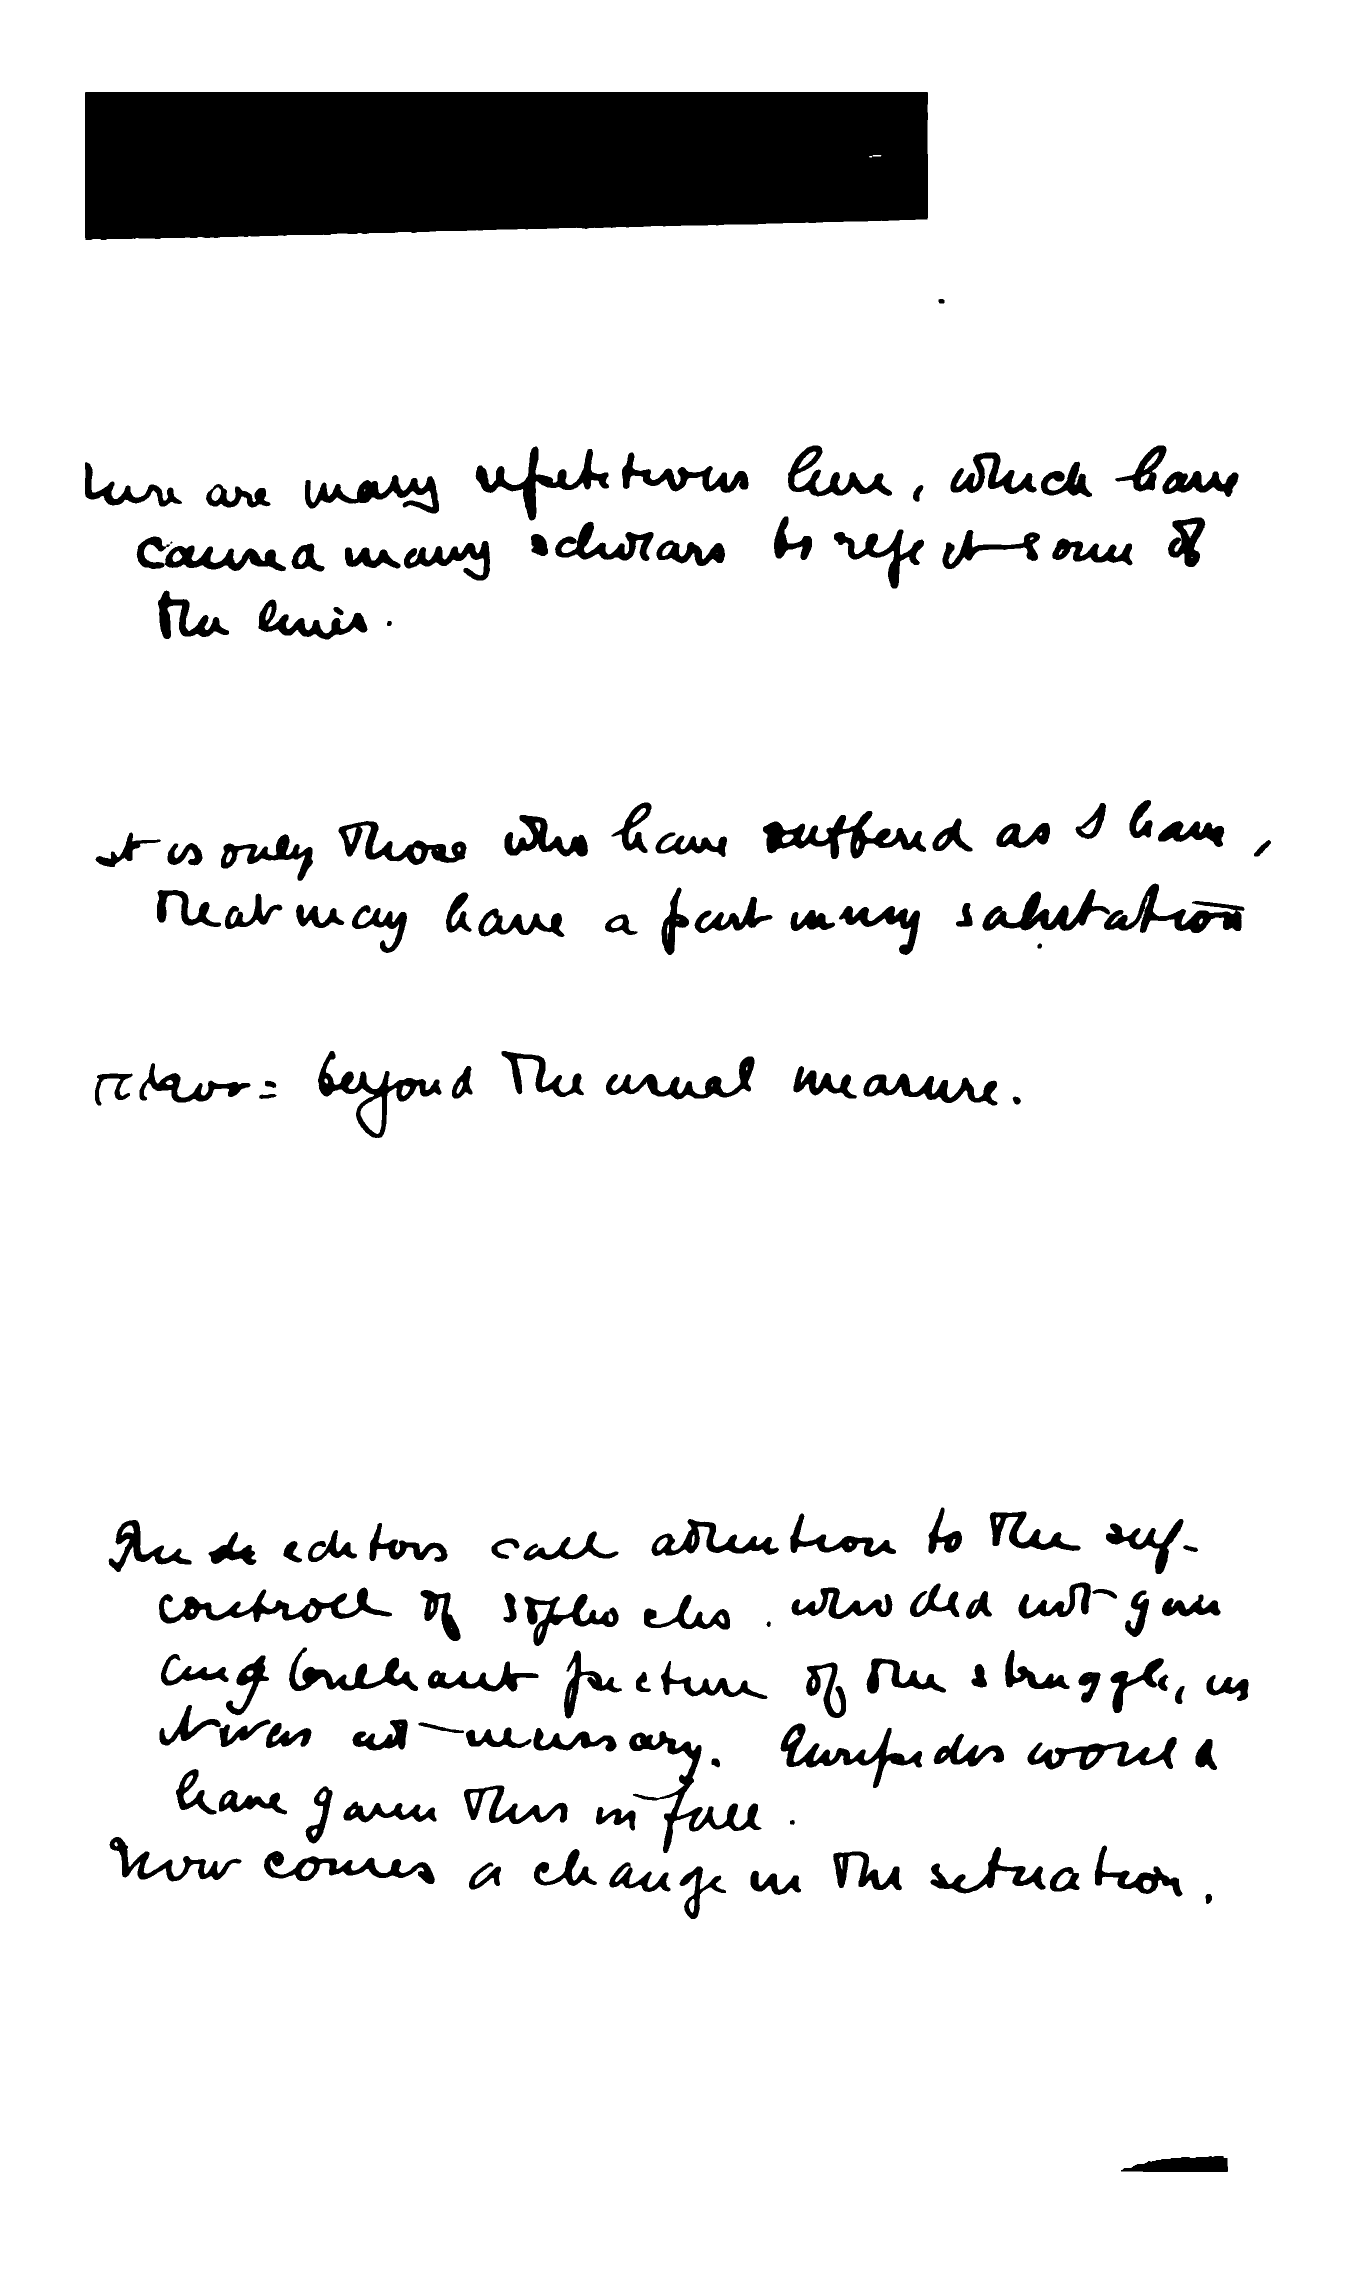 here are many repetitions here, which have
caused many scholars to reject some of
the lines.
it is only those who have suffered as I have,
that may have a part in my salutation
πέρα = beyond the usual measure.
The editors call attention to the self-
controll of Sophocles. who did not give
any brilliant picture of the struggle, as
it was not necessary. Euripides would
have given this in full.
Now comes a change in the situation.